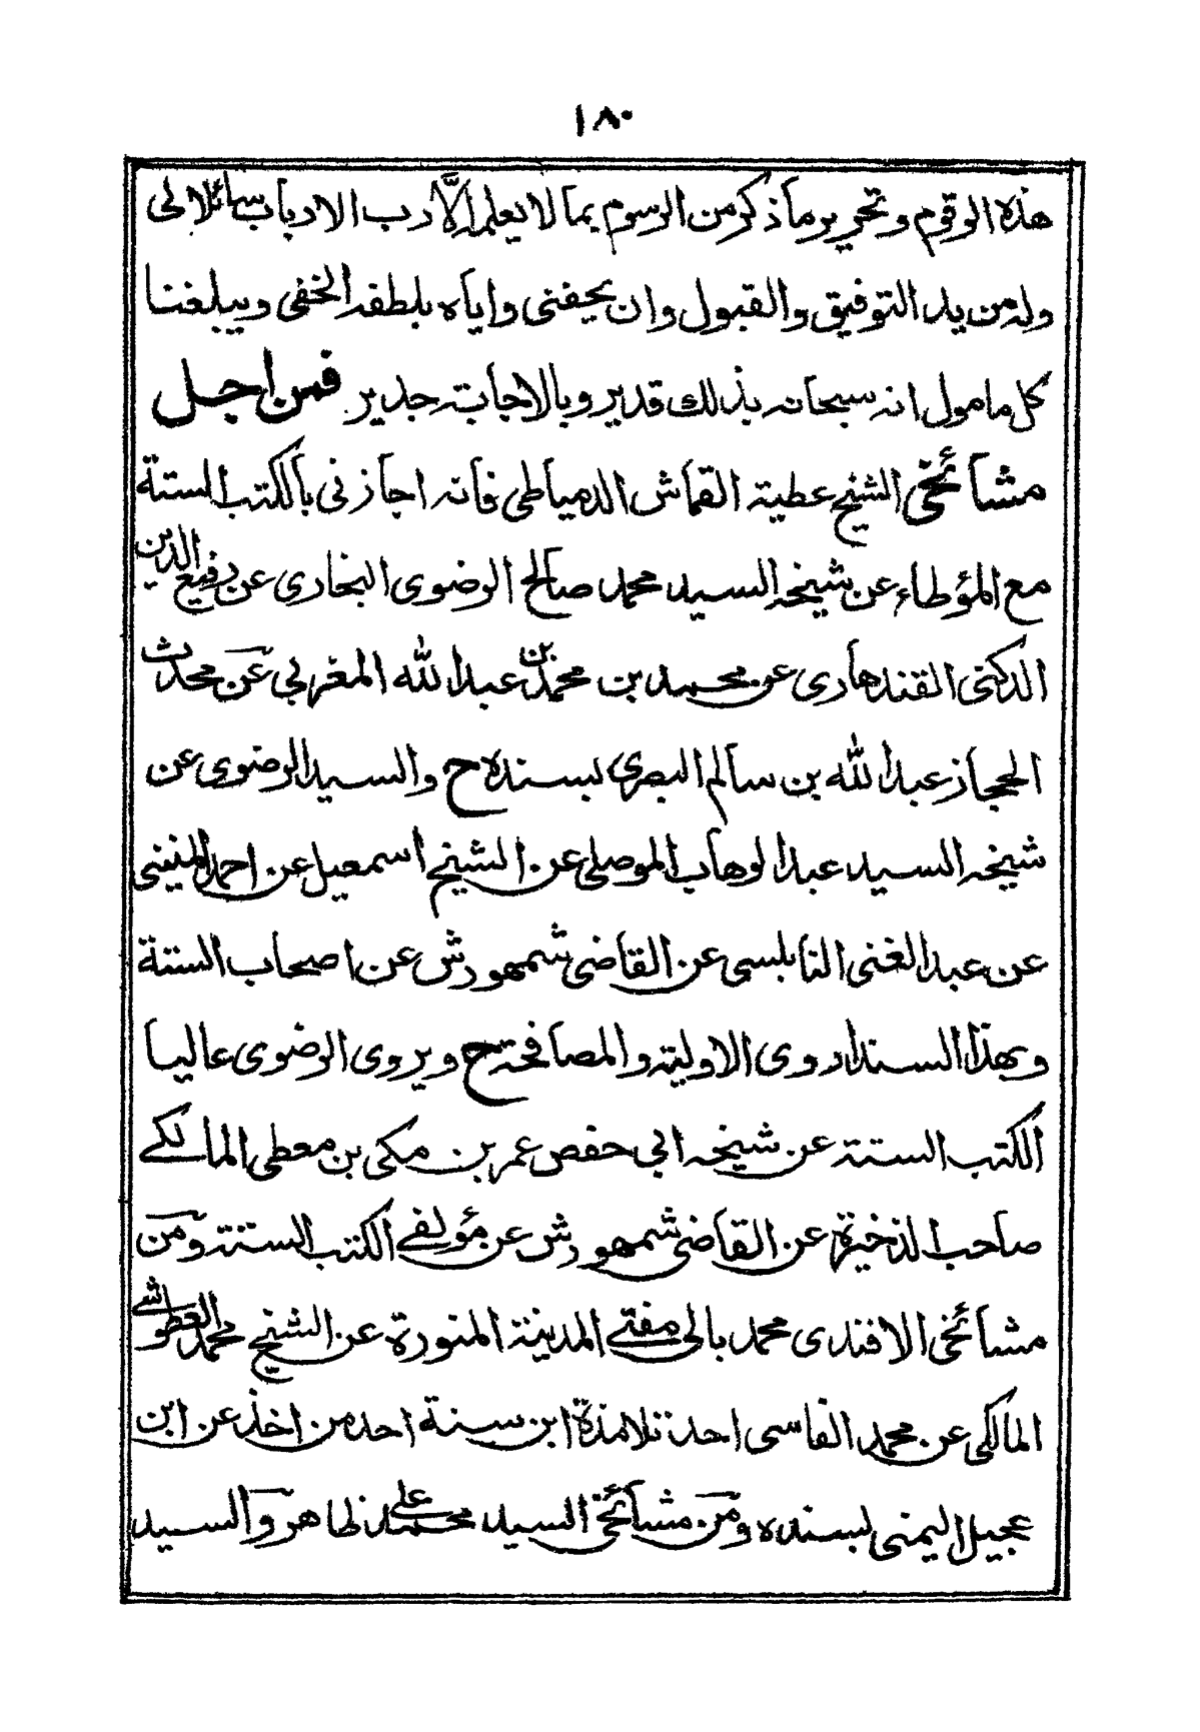 ١٨٠
هذه الوقوم وتحرير ما ذكر من الرسوم بما لا يعلمه الّا رب الارباب سائلا لى
وله من يد التوفيق والقبول وان يحفنى واياه بلطفه الخفى ويبلغنا
كل مامول انه سبحانه بذلك قدير وبالاجابة جدير فمن اجل
مشائخى الشيخ عطية القماش الدمياطى فانه اجازنى بالكتب الستة
مع المؤطاء عن شيخه السيد محمد صالح الرضوى البخارى عن رفيع الدين
الدكنى القندهارى عن محمد بن محمد بن عبدالله المغربى عن محدث
الحجاز عبدالله بن سالم البصرى بسنده ح والسيد الرضوى عن
شيخه السيد عبد الوهاب الموصلى عن الشيخ اسمعيل عن احمد المنينى
عن عبد الغنى النابلسى عن القاضى شمهورش عن اصحاب الستة
وبهذا السند اروى الاولية والمصافحة ح ويروى الرضوى عاليا
الكتب الستة عن شيخه ابى حفص عمر بن مكى بن معطى المالكے
صاحب الذخيرة عن القاضى شمهورش عن مؤلفے الكتب الستة ومن
مشائخى الافندى محمد بالى مفتے المدينة المنورة عن الشيخ محمد العطوشے
المالكى عن محمد الفاسى احد تلامذة ابن سنة احد من اخذ عن ابن
عجيل اليمنى بسنده ومن مشائخى السيد محمد على ظاهر والسيد